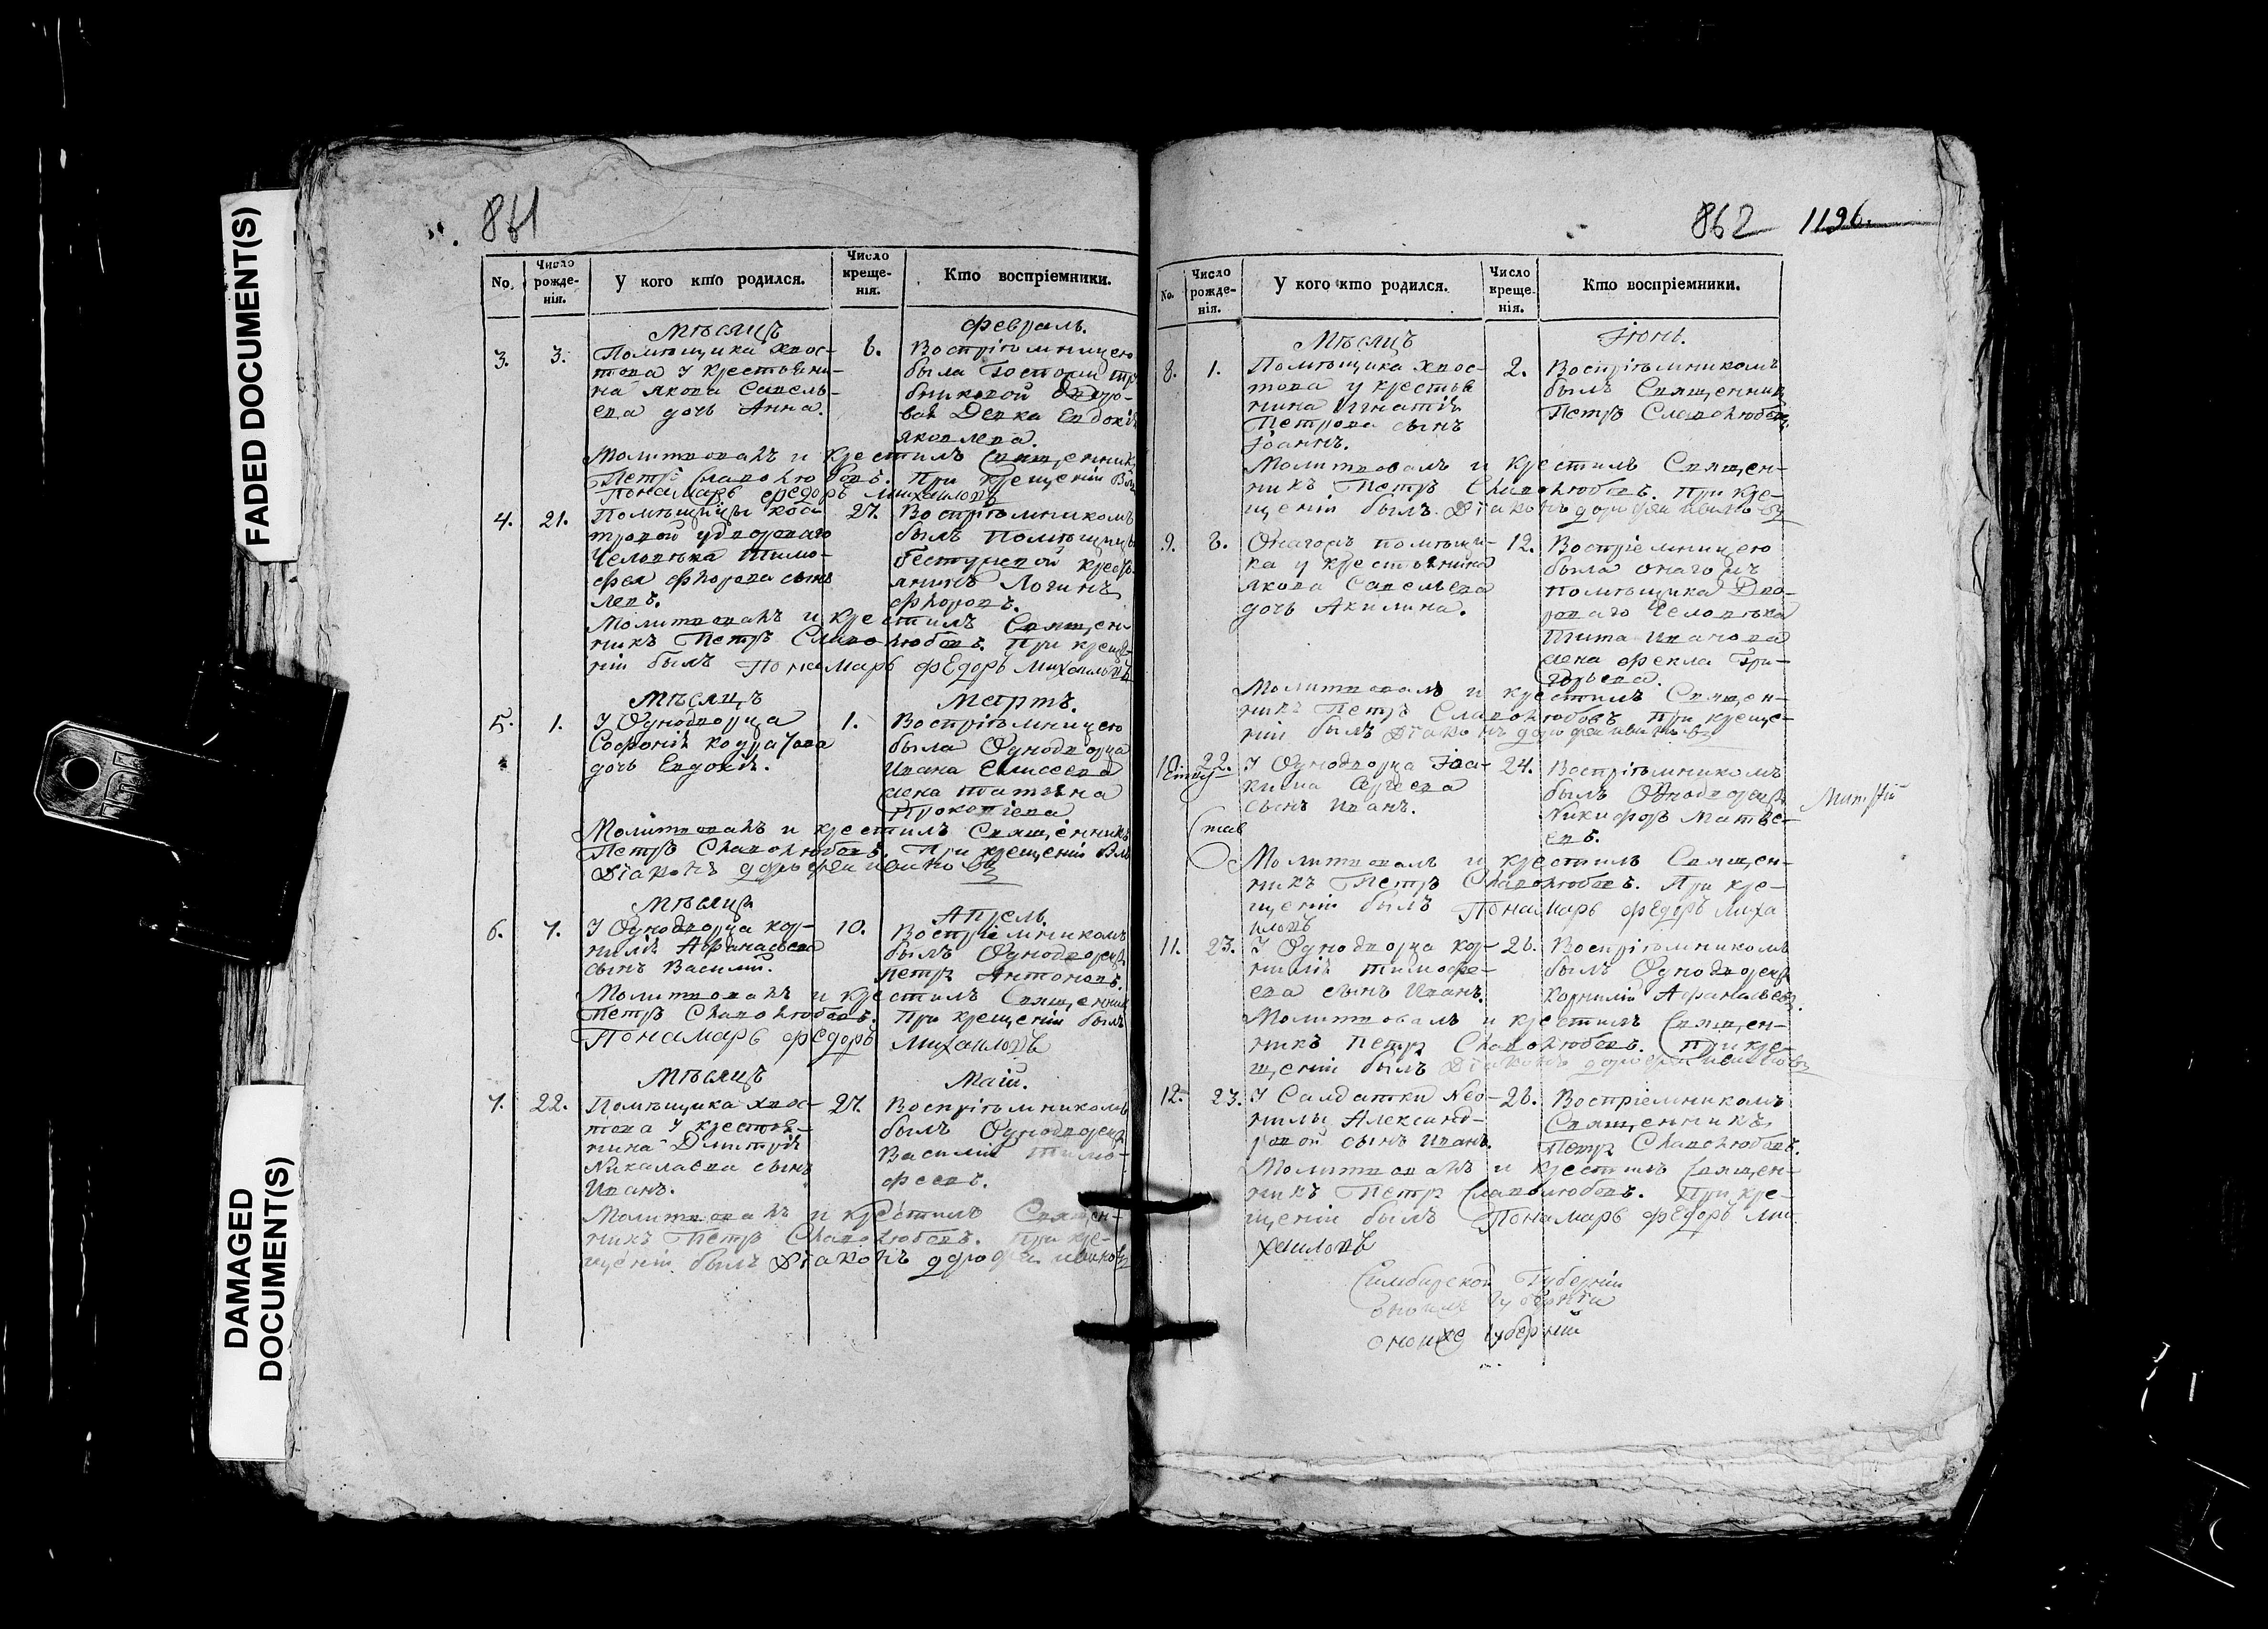 FADED DOCUMENT(S)
DAMAGED
DOCUMENT(S)
861
No.
Число рожде-нія.
У кого кто родился.
Число креще-нія.
Кто воспріемники.
Мѣсяцъ
февраль.
3.
3.
Помѣщика Хвос-
това у крестьяни-
на Якова Савель-
ева дочь Анна.
6.
Воспріѣмницею
была Госпожи
Дворо-
вая Девка Евдокія
Яковлева.
Молитвовалъ и крестилъ Священникъ
Петръ Славолюбовъ. При крещеніи был
Понамарь Федоръ Михаиловъ
4.
21.
Помѣщицы
у двороваго
Человѣка Тимо-
фея Фλорова сынъ
Левъ.
27.
Воспріѣмникомъ
былъ Помѣщицы
Бестужевой крест
янинъ Логинъ
Флоровъ.
Молитвовалъ и крестилъ Священ-
никъ Петръ Славолюбовъ. При креще
ніи былъ Понамарь Федоръ Михаиловъ
Мѣсяцъ
Мартъ.
5.
1.
У Однодворца
Софонія Кодратова
дочь Евдокія.
1.
Воспріѣмницею
была Однодворца
Ивана Елисеева
жена Татіяна
Прокопіева
Молитвовалъ и крестилъ Священникъ
Петръ Славолюбовъ. При крещеніи был
Діаконъ дорофеи ивановъ
Мѣсяцъ
Апрель.
6.
7.
У Однодворца Кор-
нилія Афанасьева
сынъ Василій.
10.
Воспріемникомъ
былъ Однодворецъ
Петръ Антоновъ.
Молитвовалъ и крестилъ Священник
Петръ Славолюбовъ. При крещеніи былъ
Понамарь Федоръ Михаиловъ
Мѣсяцъ
Маій.
7.
22.
Помѣщика Хвос-
това у крестья-
нина Дмитрія
Николаева сынъ
Иванъ.
27.
Воспріѣмникомъ
былъ Однодворецъ
Василій Тимо-
феевъ.
Молитвовалъ и крестилъ Священ-
никъ Петръ Славолюбовъ. При кре-
щеніи былъ Діаконъ дорофеи ивановъ
862
1196.
No.
Число рожде-нія.
У кого кто родился.
Число креще-нія.
Кто воспріемники.
Мѣсяцъ
Іюнь.
8.
1.
Помѣщика Хвос-
това у крестья
нина Игнатія
Петрова сынъ
Іоаннъ.
2.
Воспріѣмникомъ
былъ Священник
Петръ Славолюбовъ
Молитвовалъ и крестилъ Священ-
никъ Петръ Славолюбовъ. При кре-
щеніи былъ Діаконъ дорофеи ивановъ
9.
8.
Онагожъ помѣщи-
ка у крестьянина
Якова Савельева
дочь Акилина.
12.
Воспріемницею
была онагожъ
помѣщика Дво-
роваго Человѣка
Тита Иванова
жена Фекла Гри-
горьева.
Молитвовалъ и крестилъ Священ-
никъ Петръ Славолюбовъ При креще-
ніи былъ Діаконъ дорофеи ивановъ
10.
22.
У Однодворца Іоа-
кима Сергеева
сынъ Иванъ.
24.
Воспріѣмникомъ
былъ Однодворецъ
Никифоръ Матве-
евъ.
Молитвовалъ и крестилъ Священ-
никъ Петръ Славолюбовъ. При кре-
щеніи былъ Понамарь Федоръ Миха
иловъ
11.
23.
У Однодворца Кор-
нилія Тимофе-
ева сынъ Иванъ.
26.
Воспріѣмникомъ
былъ Однодворецъ
Корнилій Афанасьевъ.
Молитвовалъ и крестилъ Священ-
никъ Петръ Славолюбовъ. При кре-
щеніи былъ Діаконъ дорофеи ивановъ
12.
23.
У Салдатки Нео-
нилы Александ-
ровой сынъ Иванъ.
26.
Воспріемникомъ
Священникъ
Петръ Славолюбовъ.
Молитвовалъ и крестилъ Священ-
никъ Петръ Славолюбовъ. При кре-
щеніи былъ Понамарь Федоръ Ми
хаиловъ
Симбирской Губерніи
губерніи
оноиже губерніи